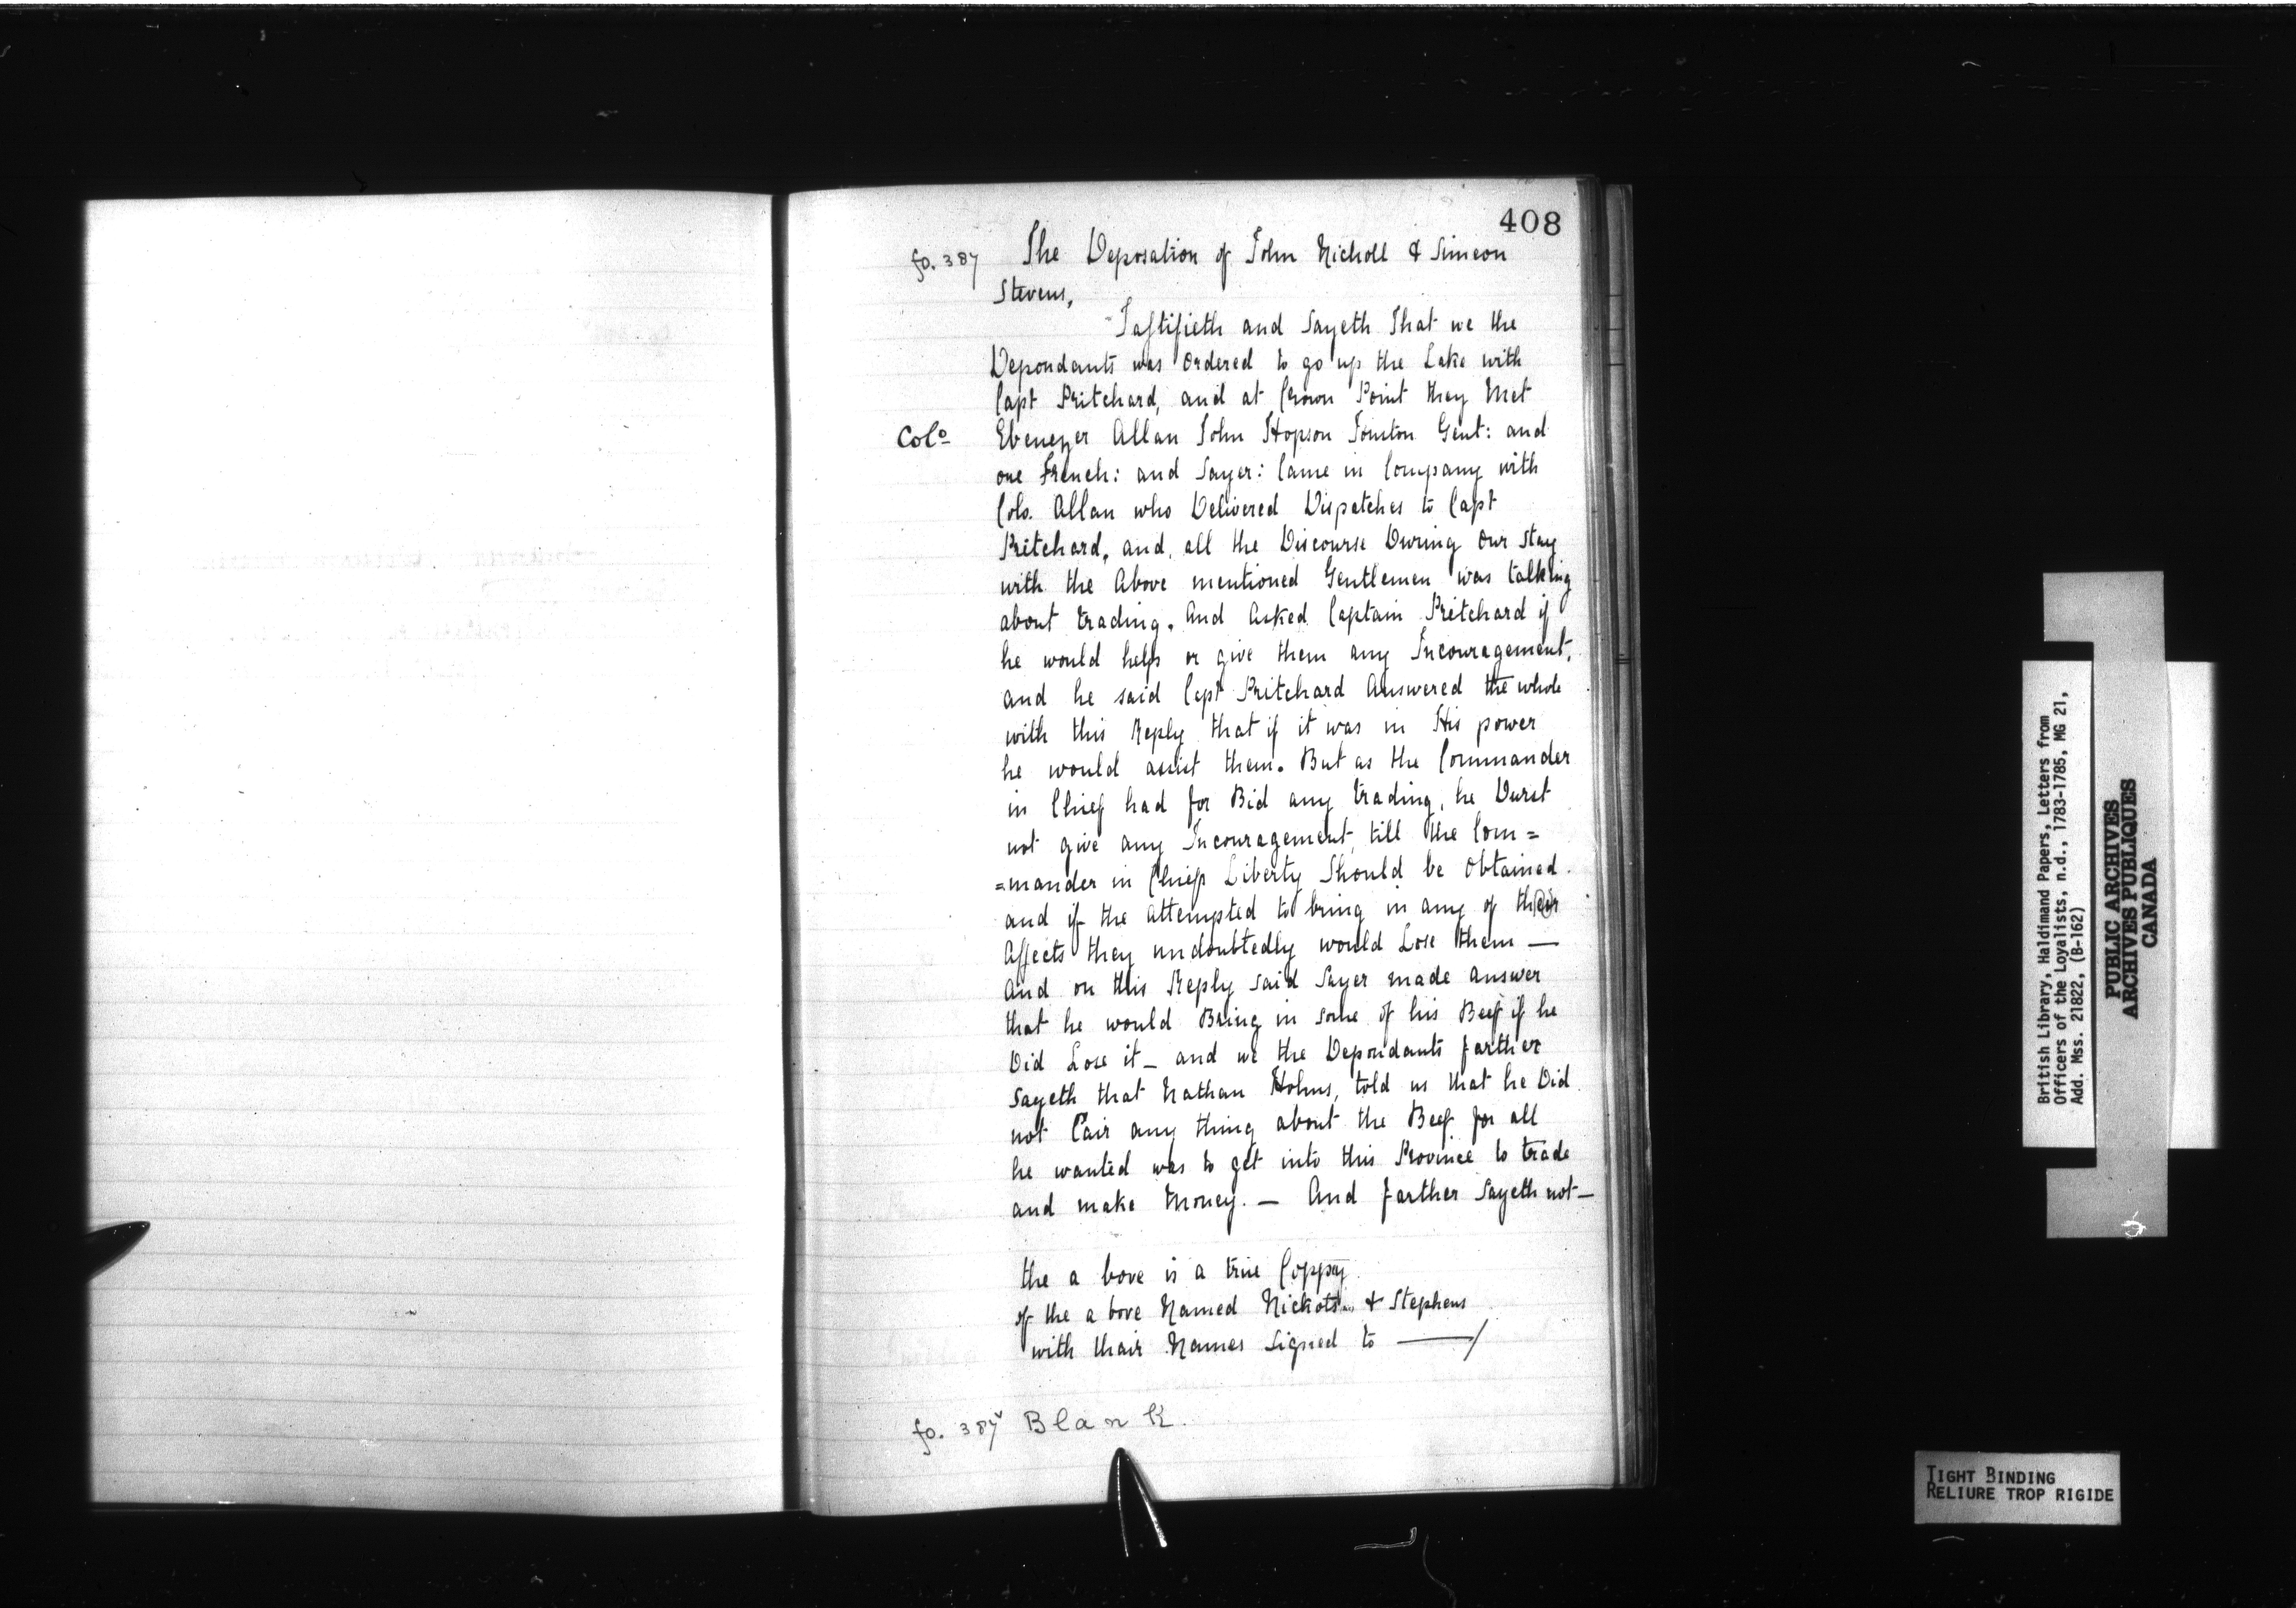 408
fo. 387 The Deposation of John Nicholl & Simeon
Stevens,
Tastifieth and Sayeth That we the
Depondants was Ordered to go up the Lake with
Capt Pritchard, and at Crown Point they Met
Colo Ebenezer Allan John Hopson Gent: and
one French: and Sayer: Came in Company with
Colo. Allan who Delivered Dispatches to Capt
Pritchard, and, all the Discourse During Our Stay
with the Above mentioned Gentlemen was talking
about trading. And Asked Captain Pritchard if
he would help or give them any Incouragement,
and he said Capt Pritchard Answered the whole
with this Reply that if it was in His power
he would assist them. But as the Commander
in Chief had for Bid any trading, he Durst
not give any Incouragement, till the Com=
=mander in Chiefs Liberty Should be Obtained.
and if the attempted to bring in any of their
Affects they undoubtedly would Lose them —
And on this Reply said Sayer made answer
that he would Bring in some of his Beef if he
Did Lose it — and we the Depondants farther
Sayeth that Nathan Holms, told us that he Did
not Cair any thing about the Beef for all
he wanted was to get into this Province to trade
and make Money. — And farther Sayeth not —
the a bove is a true Coppy
of the a bove Named & Stephens
with thair Names Signed to —/
fo. 387v Blank.
British Library, Haldimand Papers, Letters from
Officers of the Loyalists, n.d., 1783-1785, MG 21,
Add. Mss. 21822, (B-162)
PUBLIC ARCHIVES
ARCHIVES PUBLIQUES
CANADA
TIGHT BINDING
RELIURE TROP RIGIDE